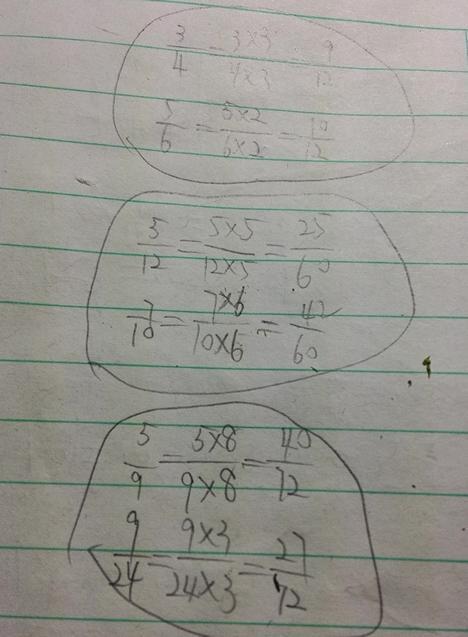 3/4 = 3×3/4×3 = 9/12
5/6 = 5×2/6×2 = 10/12
5/12 = 5×5/12×5 = 25/60
7/10 = 7×6/10×6 = 42/60
5/9 = 5×8/9×8 = 40/72
9/24 = 9×3/24×3 = 27/72